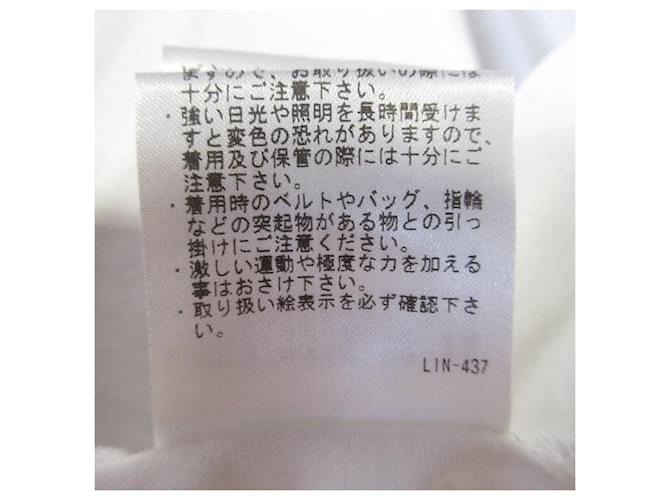 ますので、お取り扱いの際には
十分にご注意下さい。
・強い日光や照明を長時間受けま
すと変色の恐れがありますので、
着用及び保管の際には十分にご
注意下さい。
・着用時のベルトやバッグ、指輪
などの突起物がある物との引っ
掛けにご注意ください。
・激しい運動や極度な力を加える
事はおさけ下さい。
・取り扱い絵表示を必ず確認下さ
い。
LIN-437